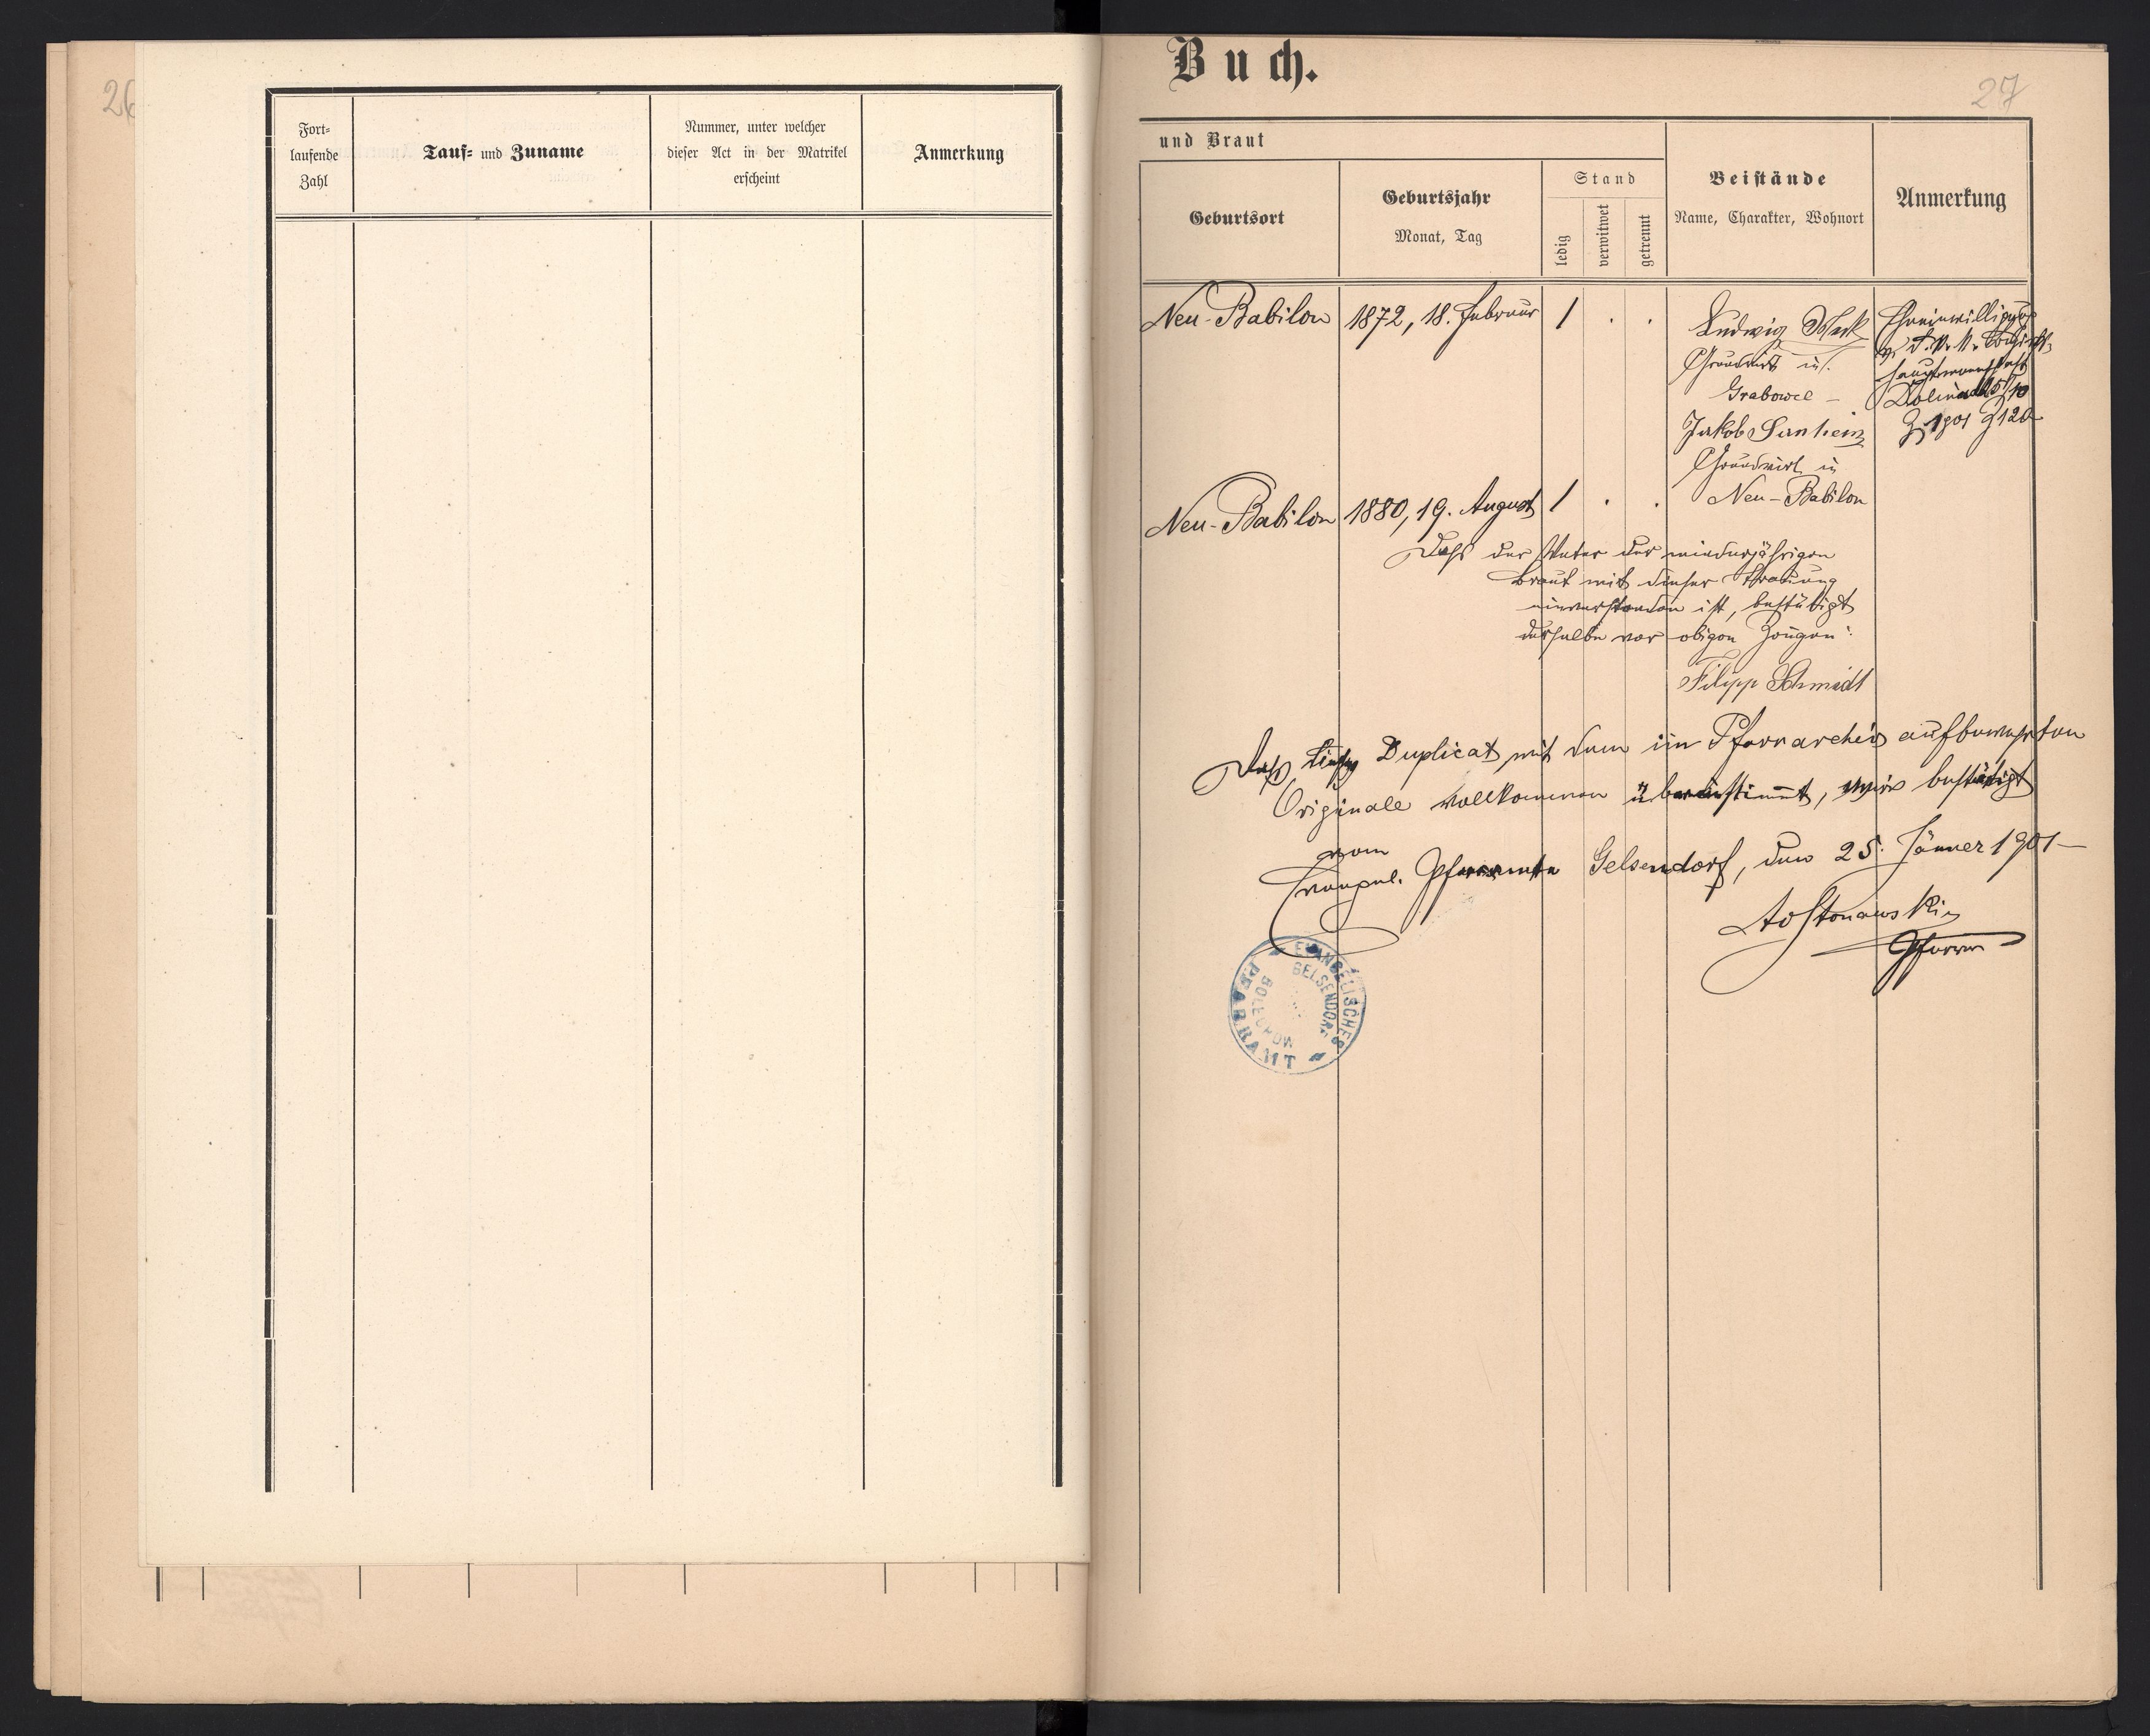 26
Fort-
laufende
Zahl
Tauf- und Zuname
Nummer, unter welcher
dieser Act in der Matrikel
erscheint
Anmerkung
Buch.
27
und Braut
Geburtsort
Geburtsjahr
Monat, Tag
Stand
ledig
verwitwet
getrennt
Beistände
Name, Charakter, Wohnort
Anmerkung
Neu-Babilon
1872, 18. Februar
1 . .
Ludwig
Grundwirt in
Grabowce -
Jakob
Grundwirt in
Neu-Babilon
Ehebewilligung
v. d. k. k. Bezirks-
hauptmannschaft
Dolina
Z 1901
Neu-Babilon
1880, 19. August
1 . .
Dass der Vater der minderjährigen
Braut mit dieser Trauung
einverstanden ist, bestätigt
derselbe vor obigen Zeugen:
Filipp Schmidt
Dass dieses Duplicat mit dem im Pfarrarchiv aufbewahrten
Originale vollkommen übereinstimmt, wird bestätigt
vom
evangel. Pfarramte Gelsendorf, den 25. Jänner 1901
Pfarrer
EVANGELISCHES
PFARRAMT
GELSENDORF
BOLECHOW